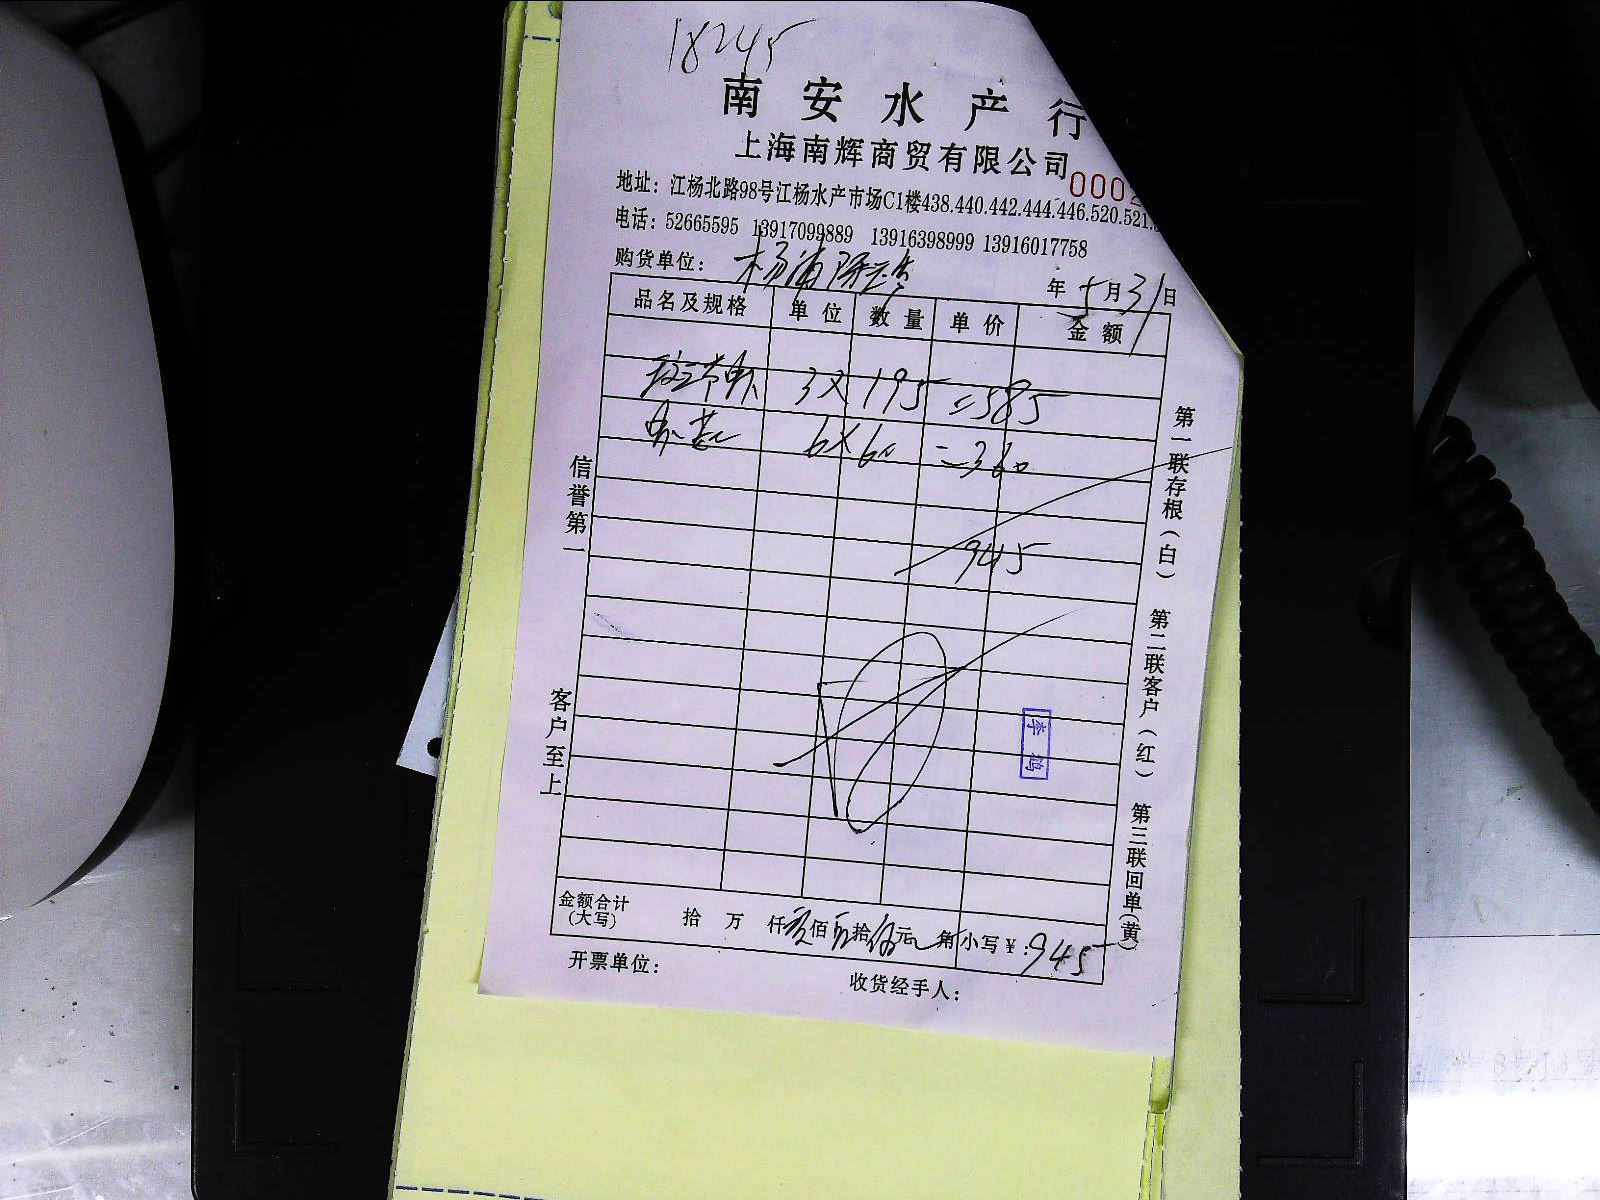 18245
南安水产行
上海南辉商贸有限公司
0002
地址：江杨北路98号江杨水产市场C1楼438.440.442.444.446.520.521.
电话：52665595 13917099889 13916398999 13916017758
购货单位：杨浦
年5月31日
品名及规格 单位 数量 单价 金额
斑节虾 3×195=585
6×60=360
945
信誉第一
客户至上
第一联存根（白） 第二联客户（红） 第三联回单（黄）
李
金额合计（大写） 拾 万 仟玖佰 拾伍元 角 小写￥：945
开票单位：
收货经手人：